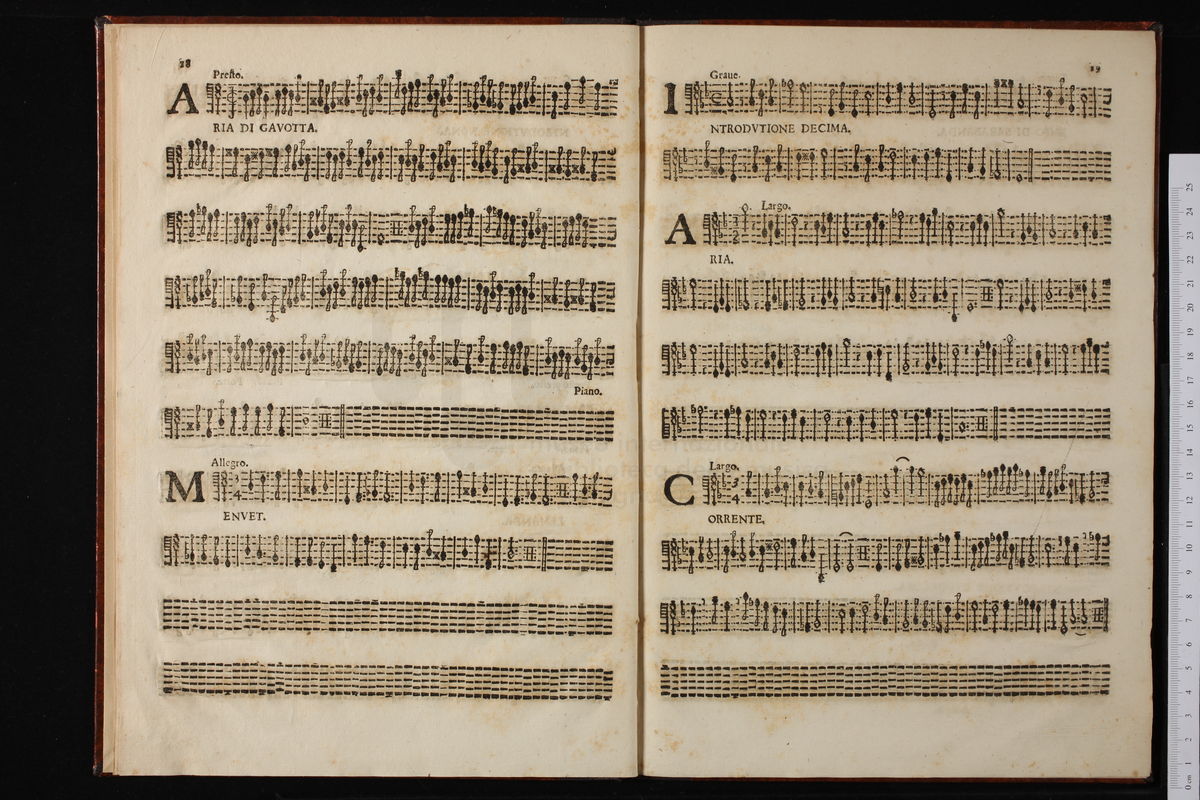 18
Presto.
ARIA DI GAVOTTA.
Piano.
Allegro.
3
4
MENVET.
19
Graue.
INTRODVTIONE DECIMA.
Largo.
3
2
ARIA.
Largo.
3
4
CORRENTE.
0 cm 1 2 3 4 5 6 7 8 9 10 11 12 13 14 15 16 17 18 19 20 21 22 23 24 25